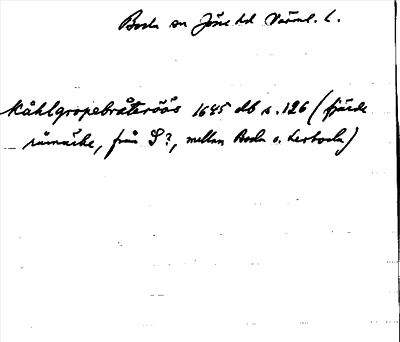 Boda sn Jösse hd Värml. l.
Kåhlgropebråterööś 1645 db s. 126 (fjärde
råmärke, från S?, mellan Boda o. Lerboda)